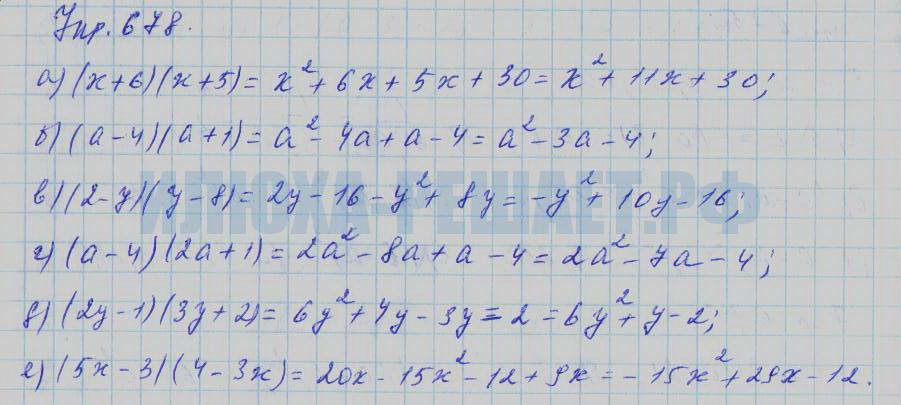 Упр. 678.
а) (x+6)(x+5) = x² + 6x + 5x + 30 = x² + 11x + 30;
б) (a-4)(a+1) = a² - 4a + a - 4 = a² - 3a - 4;
ИЛЮХА-РЕШАЕТ.РФ
в) (2-y)(y-8) = 2y - 16 - y² + 8y = -y² + 10y - 16;
г) (a-4)(2a+1) = 2a² - 8a + a - 4 = 2a² - 7a - 4;
д) (2y-1)(3y+2) = 6y² + 4y - 3y - 2 = 6y² + y - 2;
е) (5x-3)(4-3x) = 20x - 15x² - 12 + 9x = -15x² + 29x - 12.